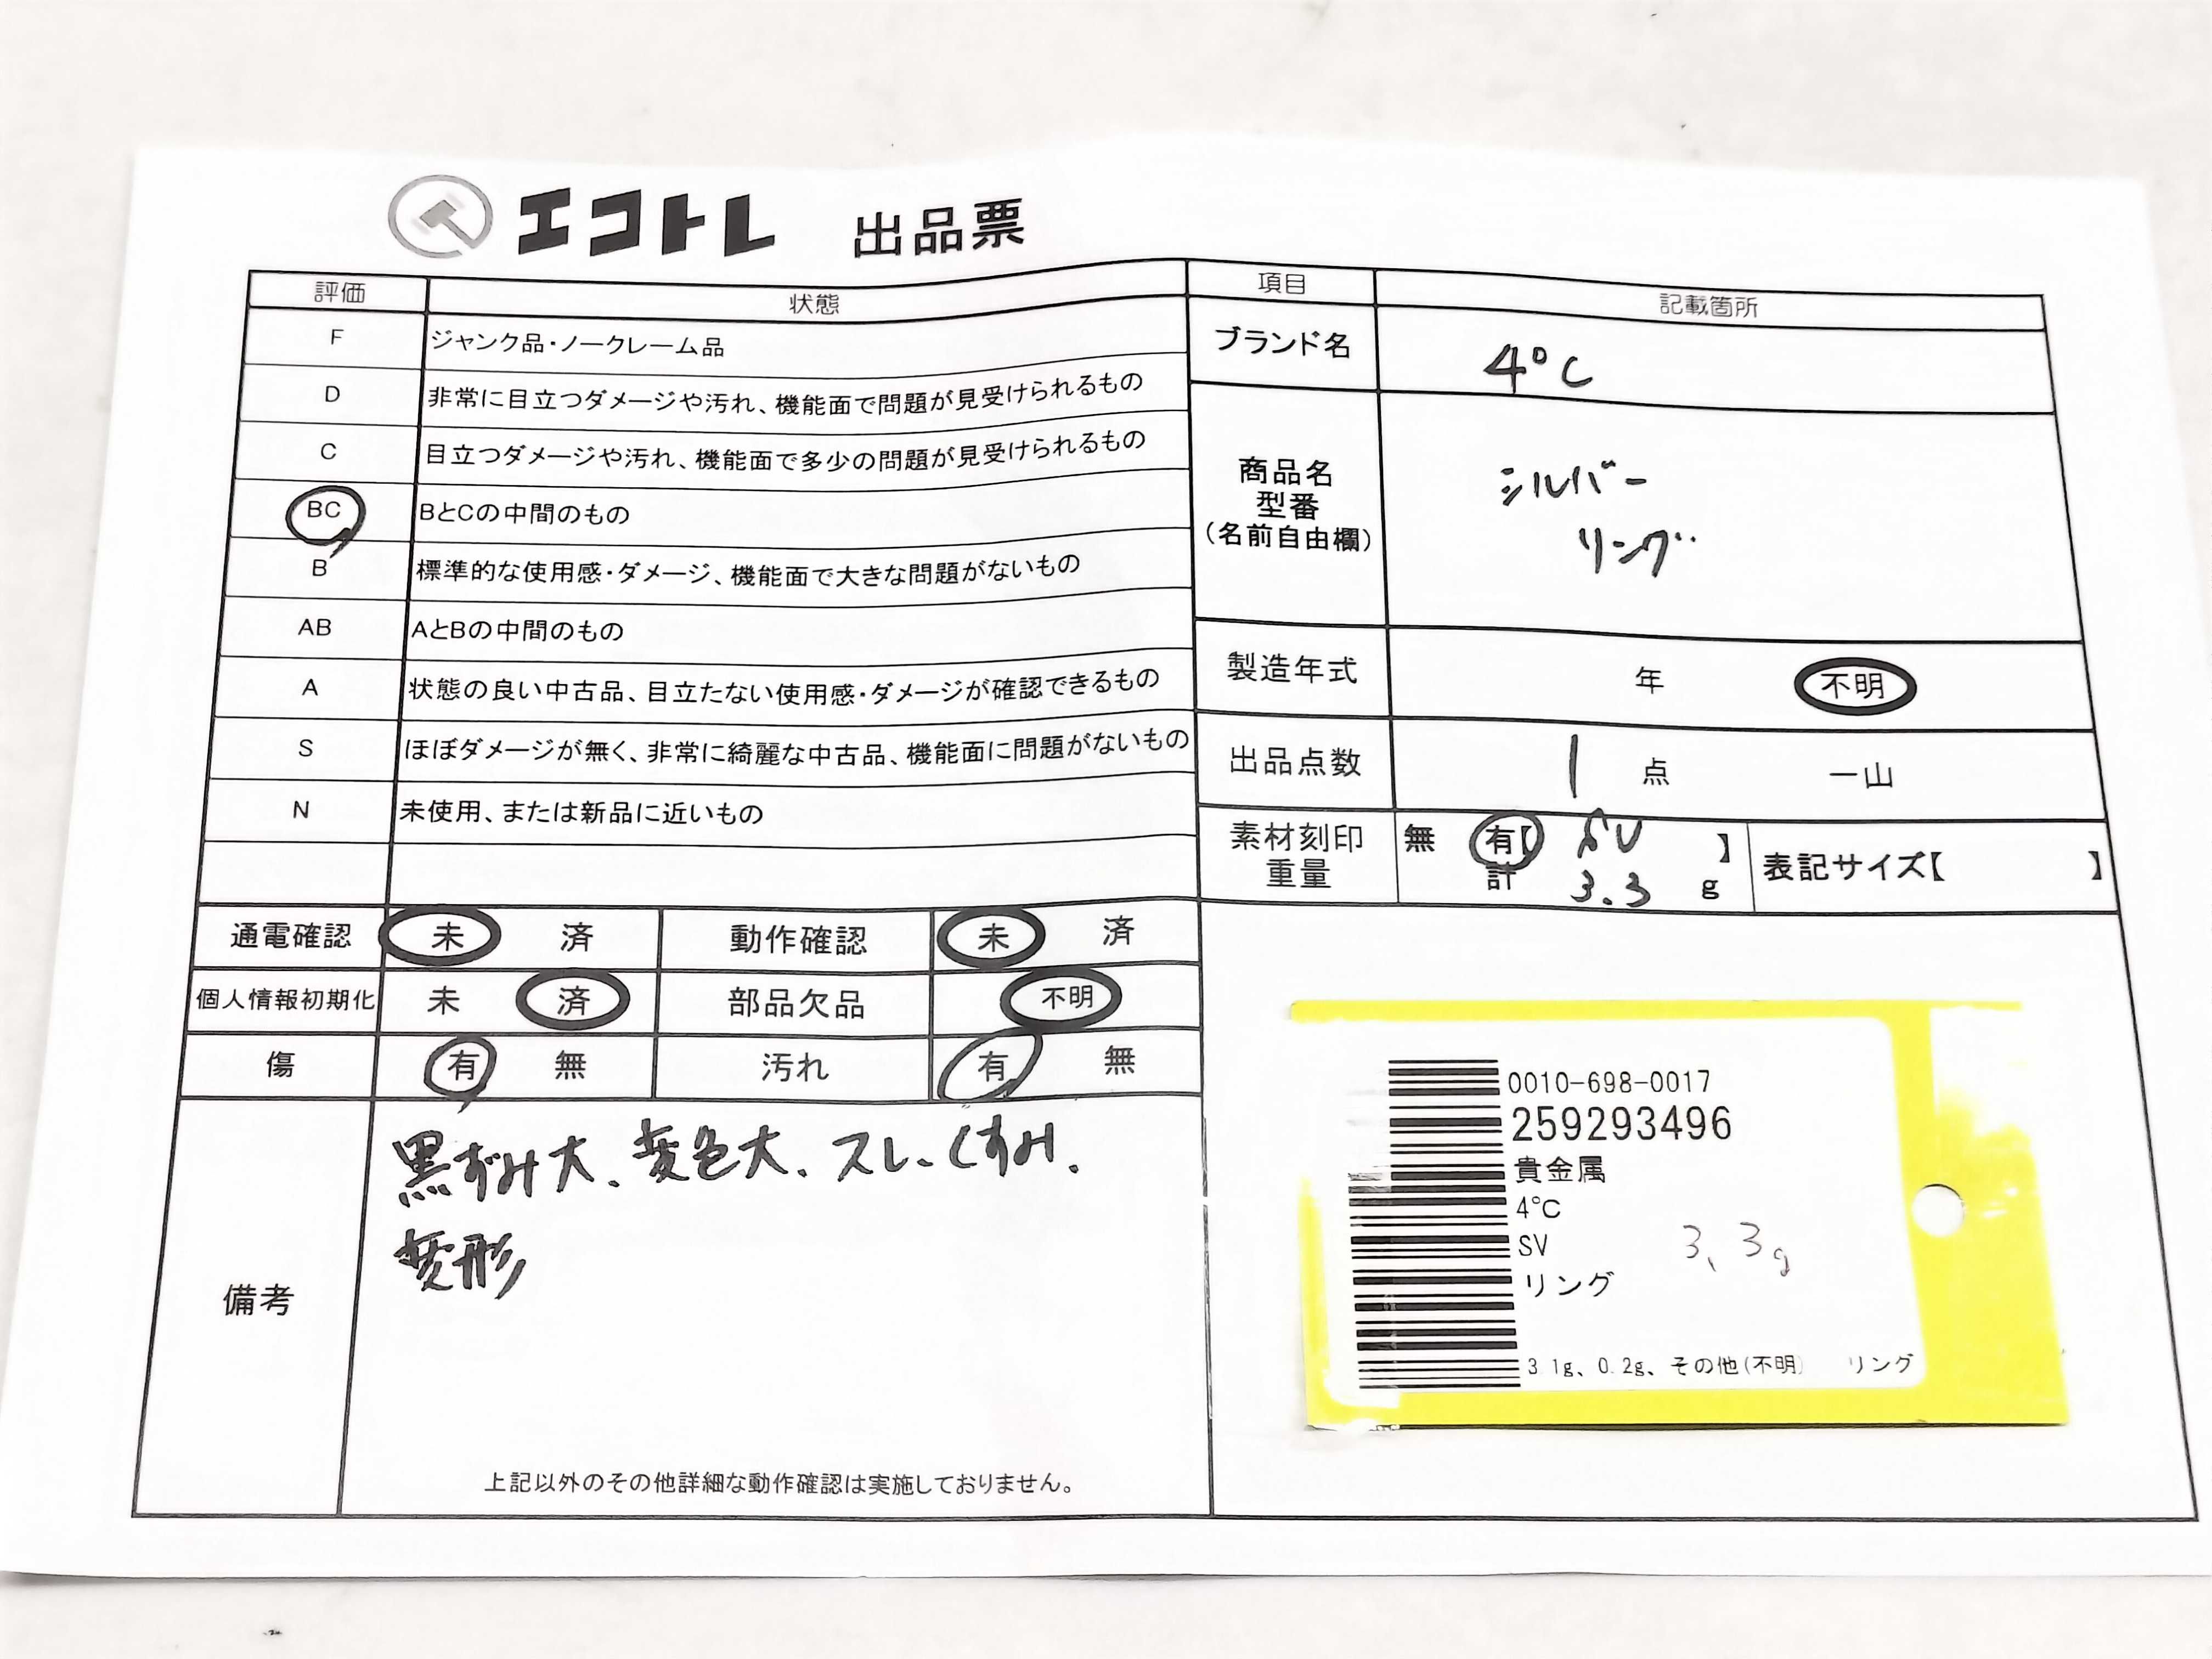 エコトレ 出品票
評価 状態
F ジャンク品・ノークレーム品
D 非常に目立つダメージや汚れ、機能面で問題が見受けられるもの
C 目立つダメージや汚れ、機能面で多少の問題が見受けられるもの
BC BとCの中間のもの
B 標準的な使用感・ダメージ、機能面で大きな問題がないもの
AB AとBの中間のもの
A 状態の良い中古品、目立たない使用感・ダメージが確認できるもの
S ほぼダメージが無く、非常に綺麗な中古品、機能面に問題がないもの
N 未使用、または新品に近いもの
通電確認 未 済 動作確認 未 済
個人情報初期化 未 済 部品欠品 不明
傷 有 無 汚れ 有 無
備考
黒ずみ大、変色大、スレ、くすみ、
変形
上記以外のその他詳細な動作確認は実施しておりません。
項目 記載箇所
ブランド名 4℃
商品名
型番
(名前自由欄)
シルバー
リング
製造年式 年 不明
出品点数 1 点 一山
素材刻印 無 有【 SV 】
重量 計 3.3 g
表記サイズ【 】
0010-698-0017
259293496
貴金属
4℃
SV
リング
3.3g
3.1g、0.2g、その他(不明) リング